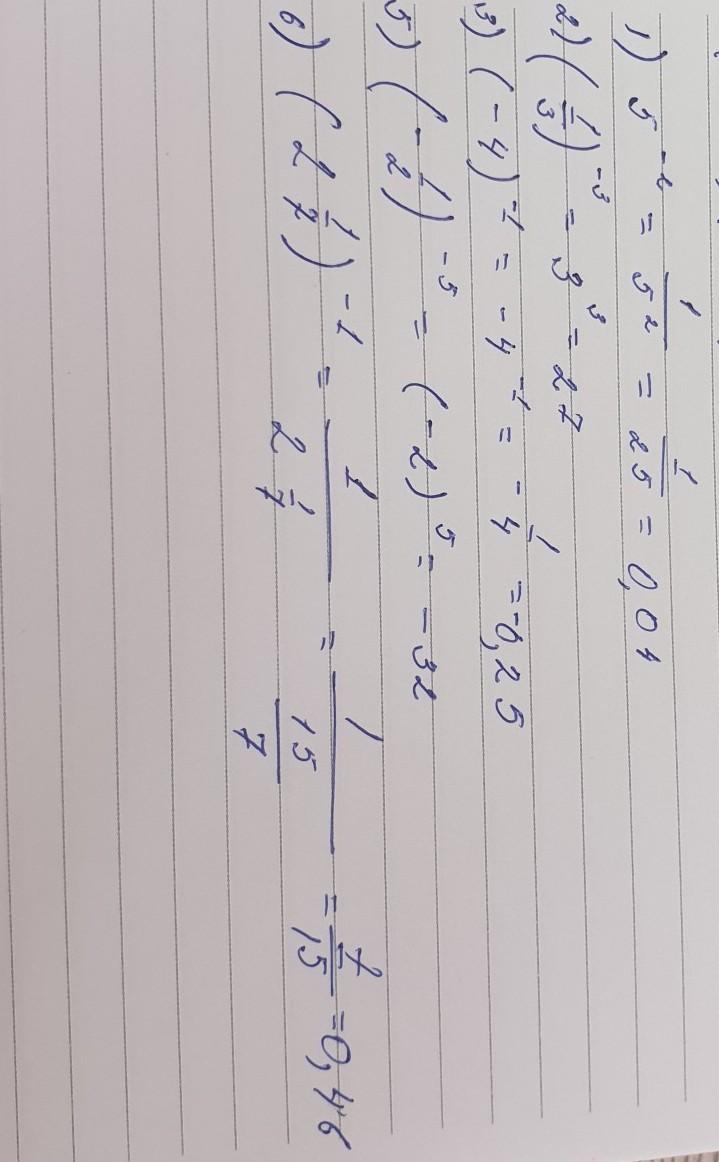 1) 5^-2 = 1/5^2 = 1/25 = 0,04
2) (1/3)^-3 = 3^3 = 27
3) (-4)^-1 = -4^-1 = -1/4 = -0,25
5) (-1/2)^-5 = (-2)^5 = -32
6) (2 1/7)^-1 = 1/(2 1/7) = 1/(15/7) = 7/15 = 0,46